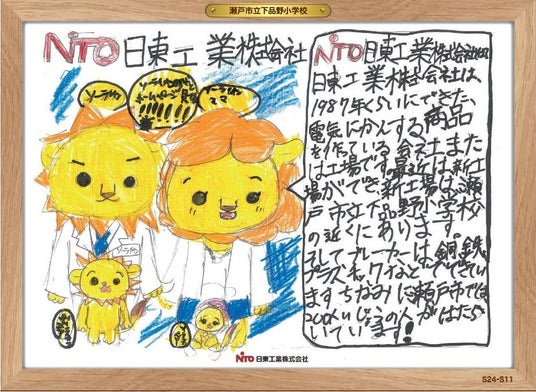 瀬戸市立下品野小学校
NITO 日東工業株式会社
ソーラパパ
ママ
NITO日東工業株式会社は
日東工業株式会社は、
1987年くらいにできた、
電気にかんする商品
を作っている会社また
は工場です。最近は新工
場ができ新工場は、瀬
戸市立下品野小学校
の近くにあります。
そしてブレーカーは、銅、鉄、
プラスチックなどでできてい
ます。ちなみに瀬戸市では
200人いじょうの人がはたら
いています!
NITO 日東工業株式会社
S24-S11